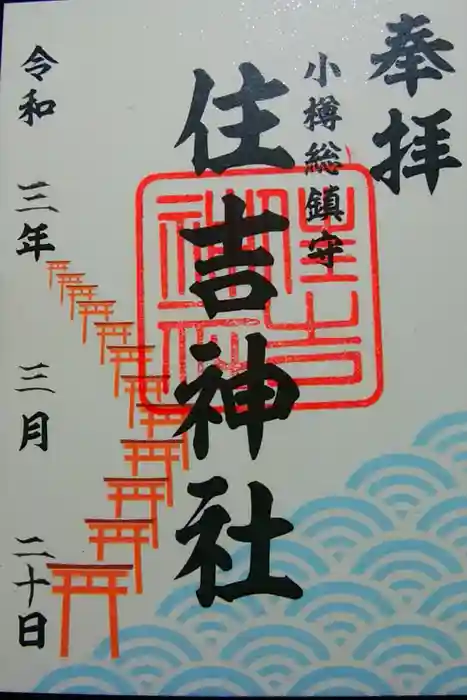 奉拝
小樽総鎮守
住吉神社
住吉神社
令和三年三月二十日